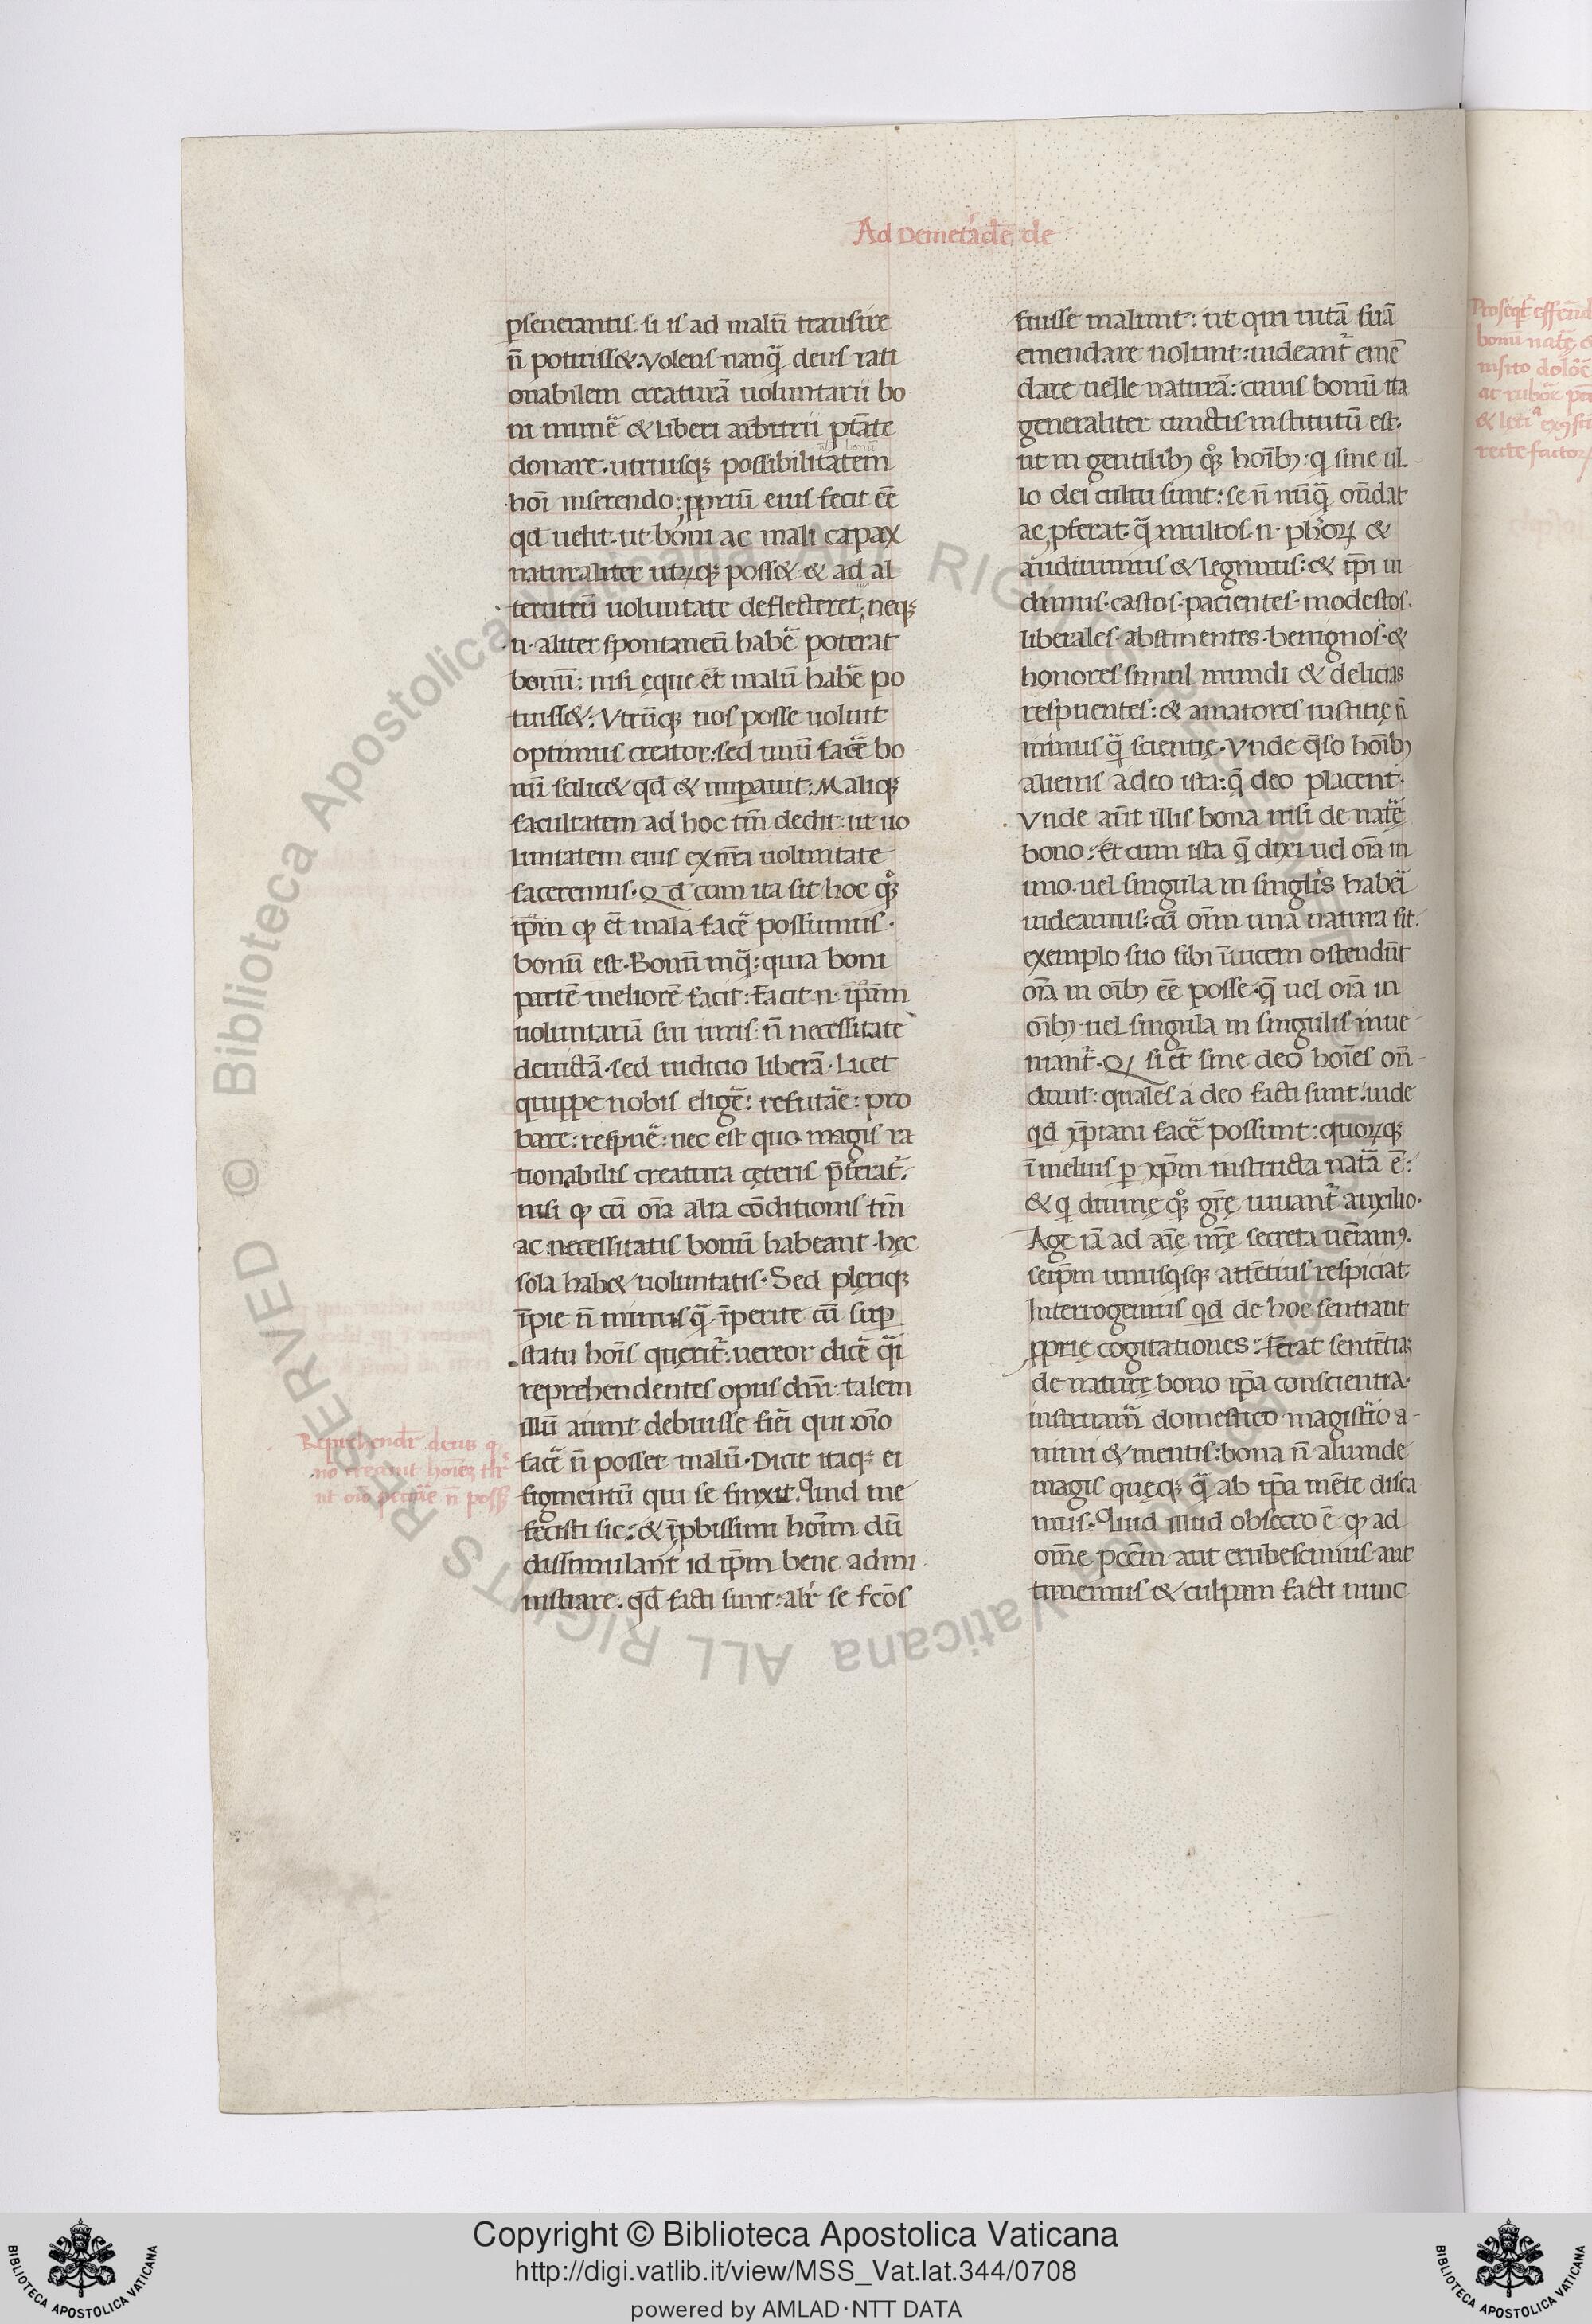 Ad Demetͥadē de
ꝑseuerantis· si is ad malū transire
n̄ potuiss&. Volens nanq̄ deus rati
onabilem creaturā uoluntarii bo
ni munē & liberi arbitrii ptāte
donare. utriusqꝫ possibilitatem
hoī inserendo: ꝓpriū eius fecit ēē
qd uelit. ut boni ac mali capax
naturaliter utrūqꝫ poss& & ad al
terutrū uoluntate deflecteret; neqꝫ
n· aliter spontaneū habē poterat
bonū: nisi ęque ēt malū habē po
tuiss&: Vtrūqꝫ nos posse uoluit
optimus creator: sed unū facē bo
nū scilic& qd & imꝑauit: Maliqꝫ
facultatem ad hoc tm̄ dedit: ut uo
luntatem eius ex nr̄a uoluntate
faceremus. Qd cum ita sit hoc qͦꝫ
ip̄m qꝫ ēt mala facē possumus.
bonū est. Bonū inq̄: quia boni
partē meliorē facit: Facit n· ip̄am
uoluntariā sui iuris: n̄ necessitate
deuictā. sed iudicio liberā. Licet
quippe nobis eligē: refutāe: pro
bare: respuē: nec est quo magis ra
tionabilis creatura cęteris p̄ferat᷑.
nisi qꝫ cū oīa alia cōditionis tm̄
ac necessitatis bonū habeant· hęc
sola hab& uoluntatis. Sed pleriqꝫ
īpie n̄ minus q̄ īperite cū suꝑ
statu hoīs querit᷑. uereor dicē q̄i
reprehendentes opus dn̄i: talem
illū aiunt debuisse fieī qui oīo
facē n̄ posset malū. Dicit itaqꝫ ei
figmentū qui se finxit. Quid me
fecisti sic: & īꝓbissimi hoīm dū
dissimulant id ip̄m bene admi
nistrare. qd̄ facti sunt: alr̄ se fc̄os
Reprehendr̄ deus q
no creauit hoīes tłr
nt oīo peccāe n̄ poss&
fuisse malunt: ut qui uitā suā
emendare nolunt: uideant᷑ emē
dare uelle naturā: cuius bonū ita
generaliter cunctis institutū est.
ut in gentilibꝫ qͦꝫ hoībꝫ· q sine ul
lo dei cultu sunt: se n̄ nūq̄ on̄dat
ac p̄ferat. q̄ multos· n· ph̄orꝝ &
audiuimus & legimus: & ip̄i ui
dimus· castos· pacientes· modestos.
liberales· abstinentes· benignos·&
honores simul mundi & delicias
respuentes: & amatores iustitię n̄
minus q̄ scientię. Vnde q̄so hoībꝫ
alienis a deo ista: q̄ deo placent.
Vnde aūt illis bona nisi de natē
bono: Et cum ista q̄ dixi uel oīa in
uno. uel singula in singlis haberi
uideamus: cū oīm una natura sit.
exemplo suo sibi īuicem ostendūt
oīa in oībꝫ ēē posse. q̄ uel oīa in
oībꝫ uel singula in singulis inue
niant᷑. Qꝫ si ēt sine deo hoīes on̄
dunt: quales a deo facti sunt: uide
qd xp̄iani facē possunt: quorꝝqꝫ
ī melius ꝑ xp̄m instructa natā ē:
& q diuinę qͦꝫ gr̄ę iuuant᷑ auxilio.
Age iā ad aīe nr̄ę secreta ueniamꝰ.
seip̄m unusqsqꝫ attētius respiciat.
Interrogemus qd de hoc sentiant
ꝓprię cogitationes: Ferat sentētiā
de naturę bono ip̄a conscientia.
instruamr̄ domestico magistͥo a
nimi & mentis: bona n̄ aliunde
magis quęqꝫ q̄ ab ip̄a mēte disca
mus. Quid illud obsecro ē· qꝫ ad
om̄e pcc̄m aut erubescimus· aut
timemus & culpam facti nunc
Copyright © Biblioteca Apostolica Vaticana
http://digi.vatlib.it/view/MSS_Vat.lat.344/0708
powered by AMLAD·NTT DATA